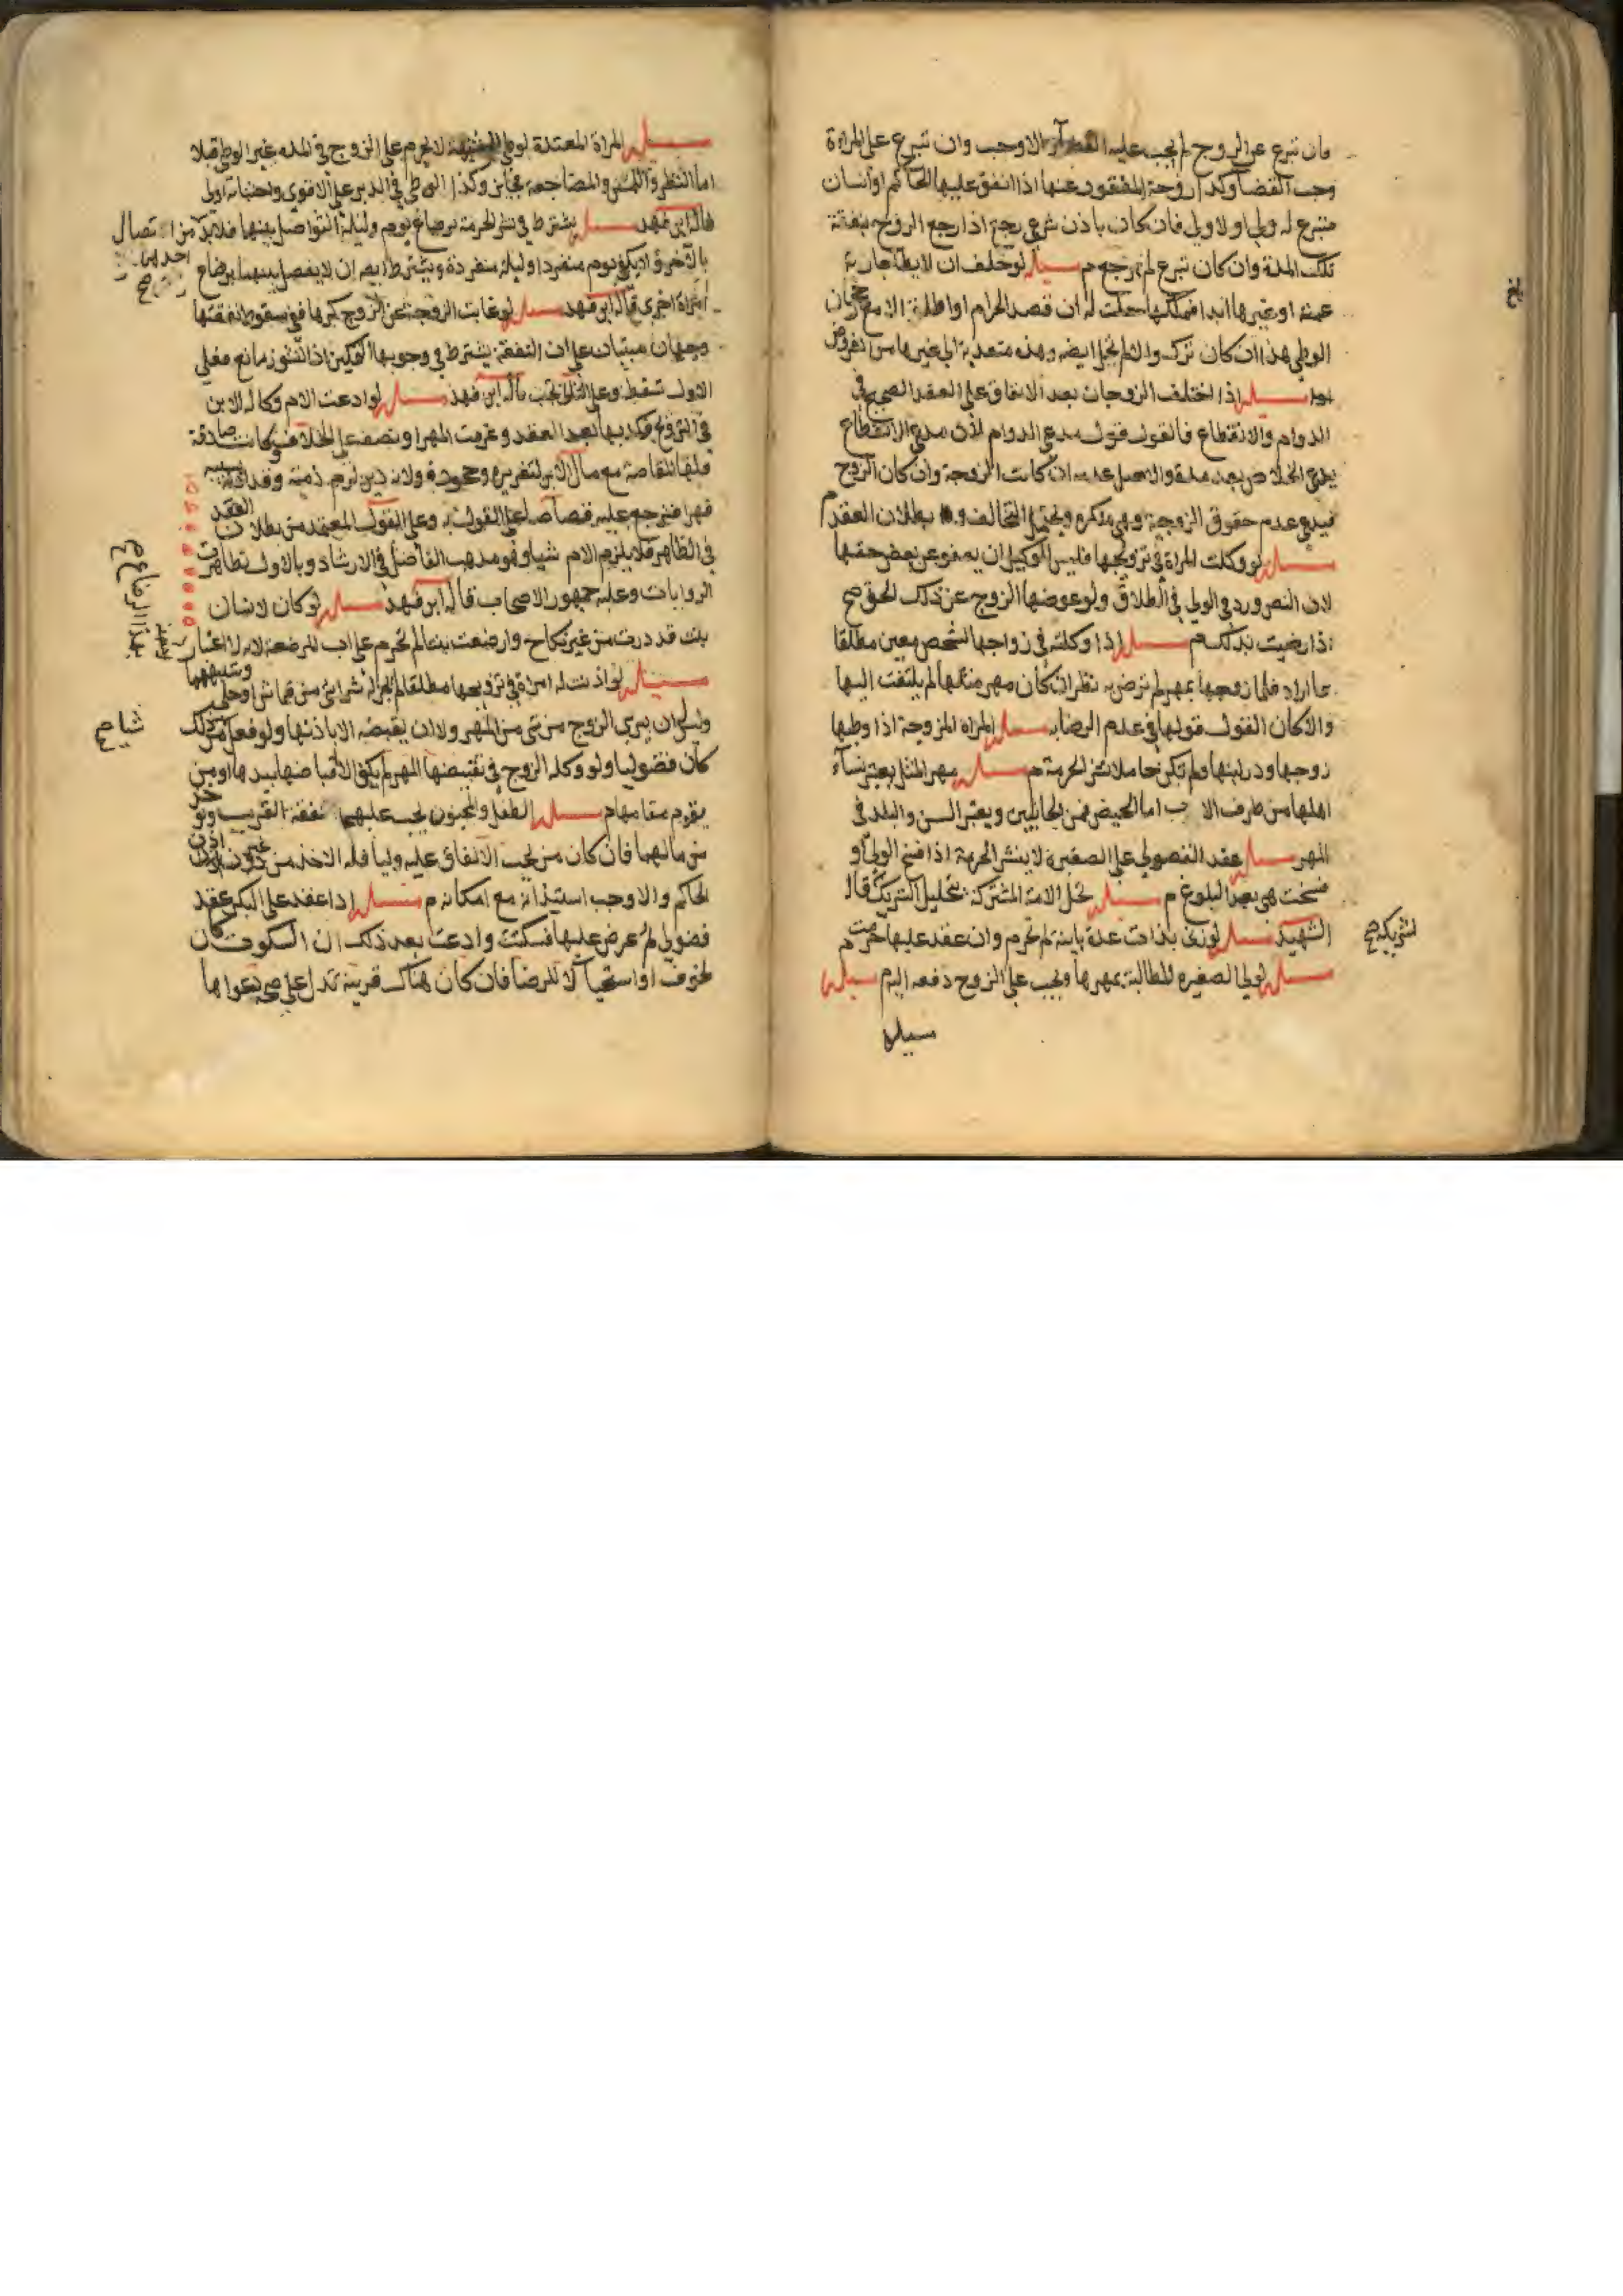 فان تبرع عن الزوج لم يجب عليه القضا الا وجب وان تبرع على المراة
وجب القضا وكذا زوجة المفقود عنها اذا انفق عليها الحاكم او انسان
متبرع له ولي او لا ولي فان كان باذن شرعي رجع اذا رجع الزوج بنفقة
تلك المدة وان كان تبرع لم يرجع م مسئله لو حلف ان لا يطا جارية
عمته او غيرها ابدا فملكها حلت له ان قصد الحرام او اطلق الا مع رجحان
الوطي هذا ان كان ترك والا لم تحل ايضه وهذه متعدية الى غيرها من الفروض
مسئله اذا اختلف الزوجان بعد الاتفاق على العقد الصحيح في
الدوام والانقطاع فالقول قول مدعي الدوام لان مدعي الانقطاع
يدعي الخلاص بعد مدة والاصل عدمه ان كانت الزوجة وان كان الزوج
فيدعي عدم حقوق الزوجية وهي منكره ويحتمل التحالف و بطلان العقد م
مسئله لو وكلت المراة في تزويجها فليس للوكيل ان يعفو عن بعض حقها
لان النص ورد في الولي في الطلاق ولو عوضها الزوج عن ذلك لحق صح
اذا رضيت بذلك م مسئله اذا وكلته في زواجها لشخص معين مطلقا
بما اراد فلما زوجها بمهر لم ترض به نظر ان كان مهر مثلها لم يلتفت اليها
والا كان القول قولها في عدم الرضا به مسئله المراه المزوجة اذا وطيها
زوجها ودر لبنها ولم تكن حاملا نشر الحرمة م مسئله مهر المثل يعتبر نساء
اهلها من طرف الاب اما الحيض فمن الجانبين ويعتبر السن والبلد في
المهر مسئله عقد الفضولي على الصغيرة لا ينشر الحرمة اذا فسخ الولي او
فسخت هي بعد البلوغ م مسئله تحل الامة المشتركة بتحليل الشريك قاله
الشهيد مسئله لو زنى بذات عدة باينة لم تحرم وان عقد عليها حرمت م
لشريكه صح
مسئله لولي الصغيره المطالبة بمهرها ويجب على الزوج دفعه اليه م مسئله
مسئله
مسئله المراة المعتدة لوطي الشبهة لا يحرم على الزوج في المده غير الوطي قبلا
اما النظر واللمس والمضاجعة فجايز وكذا الوطي في الدبر على الاقوى واجتنابه اولى
قاله ابن فهد مسئله يشترط في نشر الحرمة برضاع يوم وليلة التواصل بينها فلا بد من اتصال
بالاخر ولا يكفي يوم منفردا وليلة منفردة ويشترط ايضه ان لا يفصل بينهما برضاع
امراة اخرى قاله ابن فهد مسئله لو غابت الزوجة عن الزوج كرها ففي سقوط نفقتها
وجهان مبنيان على ان النفقة يشترط في وجوبها التمكين اذ النشوز مانع فعلى
الاول تسقط وعلى الثاني تجب قاله ابن فهد مسئله لو ادعت الام وكالة الابن
في التزويج فكذبها بعد العقد وغرمت المهر او نصفه على الخلاف فكانت صادقة
فلها المقاصة مع مال الابن لتغريره وجحوده ولانه دين لزم ذمته وقد
قهرا فترجع عليه قصاصا على القول به وعلى القول المعتمد من بطلان العقد
في الظاهر فلا يلزم الام شيا وهو مذهب الفاضل في الارشاد وبالاول تظاهرت
الروايات وعليه جمهور الاصحاب قاله ابن فهد مسئله لو كان لانسان
بنت قد درت من غير نكاح وارضعت بنتا لم تحرم على اب المرضعة لانه لا اعتبار
بهذا الرضاع صح
مسئله لو اذنت له امراة في تزويجها مطلقا لم يجز له شرا شي من قماش او حلي وشبههما
وليس ان يبري الزوج من شي من المهر ولا ان يقبضه الا باذنها ولو فعل من ذلك
شيا صح
كان فضوليا ولو وكله الزوج في تقبيضها المهر لم يكف الا اقباضها بيدها او من
يقوم مقامها م مسئله الطفل والمجنون يجب عليهما نفقة القريب
من مالهما فان كان من يجب الانفاق عليه وليا فله الاخذ من دون اذن
الحاكم والا وجب استيذانه مع امكانه م مسئله اذا عقد على البكر عقد
فضولي ثم عرض عليها فسكتت وادعت بعد ذلك ان السكوت كان
لخوف او استحيا لا للرضا فان كان هناك قرينة تدل على صحة دعواها